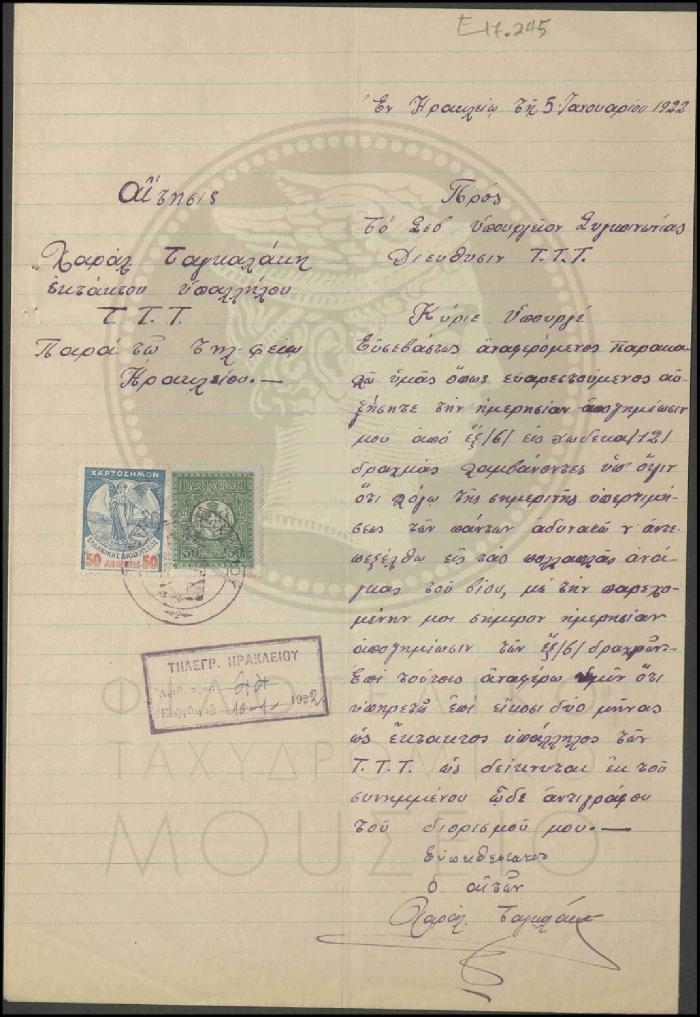 E 17.245
Ἐν Ἡρακλείῳ τῇ 5 Ἰανουαρίου 1922
Αἴτησις
Χαράλ Ταγκαλάκη
ἐκτάκτου ὑπαλλήλου
Τ. Τ. Τ.
Παρά τῶ τηλ-φείω
Ηρακλείου.—
Πρός
Τό Σεβ Ὑπουργεῖον Συγκοινωνίας
Διευθυσιν Τ.Τ.Τ.
Κύριε Ὑπουργέ
Εὐσεβάστως ἀναφερόμενος παρακα
λῶ ὑμᾶς ὅπως εὐαρεστούμενος αὐ
ξήσητε τήν ἡμερησίαν ἀποζημίωσιν
μου ἀπό ἕξ/6/ εἰς δώδεκα/12/
δραχμάς λαμβάνοντες ὑπ' ὄψιν
ὅτι λόγω τῆς σημερινῆς ὑπερτιμή
σεως τῶν πάντων ἀδυνατῶ ν' ἀντε
πεξέλθω εἰς τάς πολλαπλάς ἀνάγ
κας τοῦ βίου, μέ τήν παρεχο
μένην μοι σήμερον ἡμερησίαν
ἀποζημίωσιν τῶν ἕξ/6/ δραχμῶν.
Ἐπί τούτοις ἀναφέρω ὑμῖν ὅτι
ὑπηρετῶ ἐπί εἴκοσι δυο μῆνας
ὡς ἔκτακτος ὑπάλληλος τῶν
Τ.Τ.Τ. ὡς δείκνυται ἐκ τοῦ
συνημμένου ὧδε ἀντιγράφου
τοῦ διορισμοῦ μου.—
Εὐπειθέστατος
ὁ αἰτῶν
Χαράλ. Ταγκαλάκης
ΧΑΡΤΟΣΗΜΟΝ
50 ΛΕΠΤΑ 50
50 50
ΤΗΛΕΓΡ. ΗΡΑΚΛΕΙΟΥ
10-1- 1922
ΦΙΛΟΤΕΛΙΚΟ
ΤΑΧΥΔΡΟΜΙΚΟ
ΜΟΥΣΕΙΟ